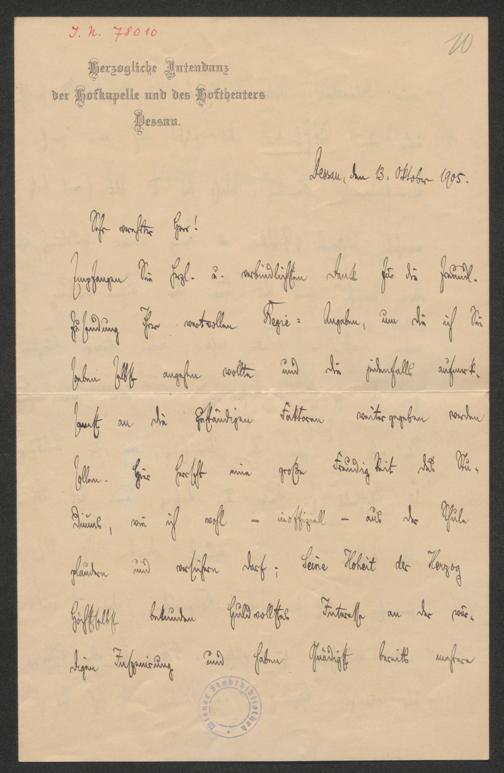 J. N. 78010
20
Herzogliche Intendanz
der Hofkapelle und des Hoftheaters
Dessau.
Dessau, den 13. Oktober 1905.
Sehr verehrter Herr!
Empfangen Sie herzl. u. verbindlichsten Dank für die freundl.
Zusendung Ihrer wertvollen Regie-Angaben, um die ich Sie
selbst angehen wollte und die jedenfalls aufmerk-
samst an die zuständigen Faktoren weitergegeben werden
sollen. Hier herrscht eine große Freudigkeit des Stu-
diums, wie ich wohl – inoffiziell – aus der Schule
plaudern und versichern darf; Seine Hoheit der Herzog
Höchstselbst bekunden huldvollstes Interesse an der wür-
digen Inszenierung und haben gnädigst bereits mehrere
Wiener Stadtbibliothek